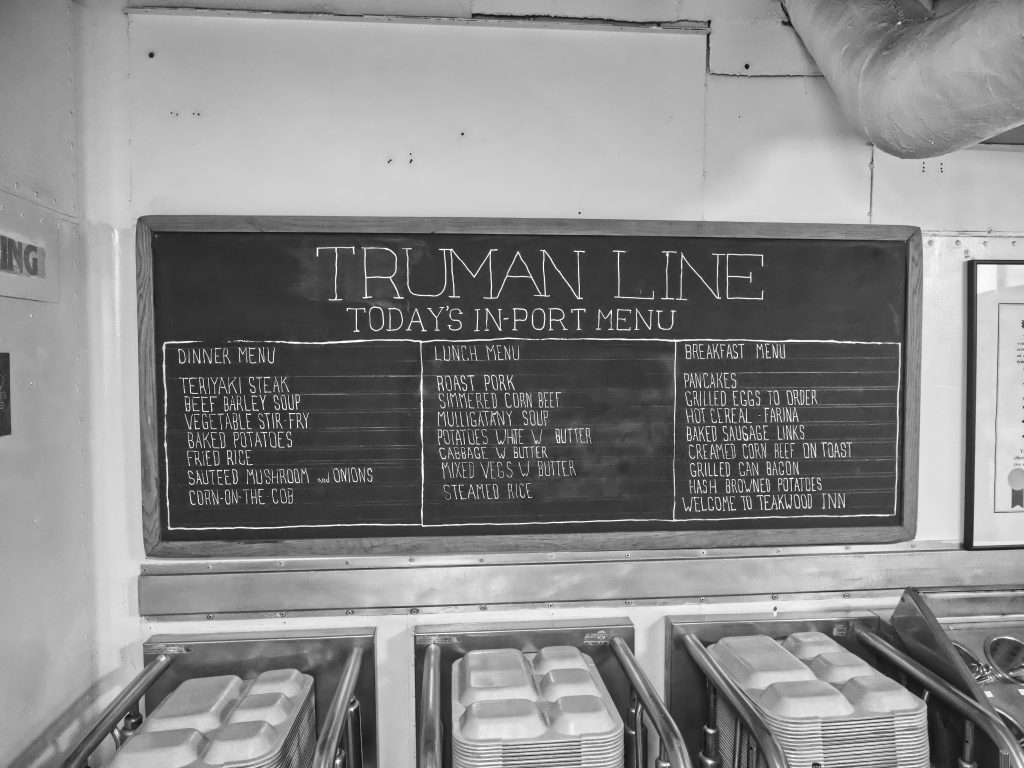 ING
TRUMAN LINE
TODAY'S IN-PORT MENU
DINNER MENU
TERIYAKI STEAK
BEEF BARLEY SOUP
VEGETABLE STIR FRY
BAKED POTATOES
FRIED RICE
SAUTEED MUSHROOM and ONIONS
CORN-ON-THE COB
LUNCH MENU
ROAST PORK
SIMMERED CORN BEEF
MULLIGATANY SOUP
POTATOES WHITE W/ BUTTER
CABBAGE W/ BUTTER
MIXED VEGS W/ BUTTER
STEAMED RICE
BREAKFAST MENU
PANCAKES
GRILLED EGGS TO ORDER
HOT CEREAL FARINA
BAKED SAUSAGE LINKS
CREAMED CORN BEEF ON TOAST
GRILLED CAN BACON
HASH BROWNED POTATOES
WELCOME TO TEAKWOOD INN